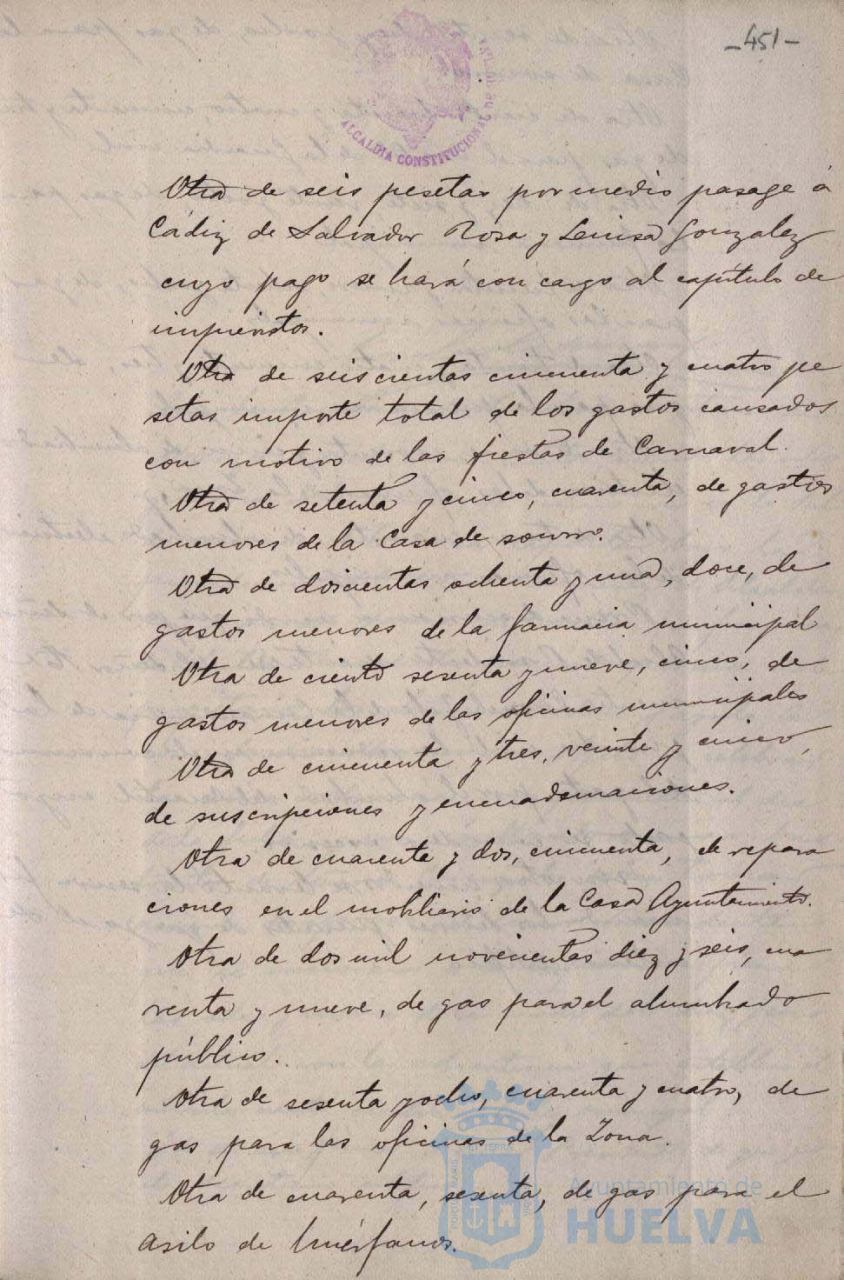 -451-
ALCALDIA CONSTITUCIONAL DE HUELVA
Otra de seis pesetas por medio pasage á
Cádiz de Salvador Rosa y Luisa Gonzalez
cuyo pago se hará con cargo al capítulo de
imprevistos.
Otra de seiscientas cincuenta y cuatro pe
setas importe total de los gastos causados
con motivo de las fiestas de Carnaval.
Otra de setenta y cinco, cuarenta, de gastos
menores de la Casa de socorro.
Otra de doscientas ochenta y una, doce, de
gastos menores de la farmacia municipal
Otra de ciento sesenta y nueve, cinco, de
gastos menores de las oficinas municipales
Otra de cincuenta y tres, veinte y cinco,
de suscripciones y encuadernaciones.
Otra de cuarenta y dos, cincuenta, de repara
ciones en el mobliario de la Casa Ayuntamiento.
Otra de dos mil novecientas diez y seis, cua
renta y nueve, de gas para el alumbrado
público.
Otra de sesenta y ocho, cuarenta y cuatro, de
gas para las oficinas de la Zona.
Otra de cuarenta, sesenta, de gas para el
asilo de huérfanos.
Ayuntamiento de
HUELVA